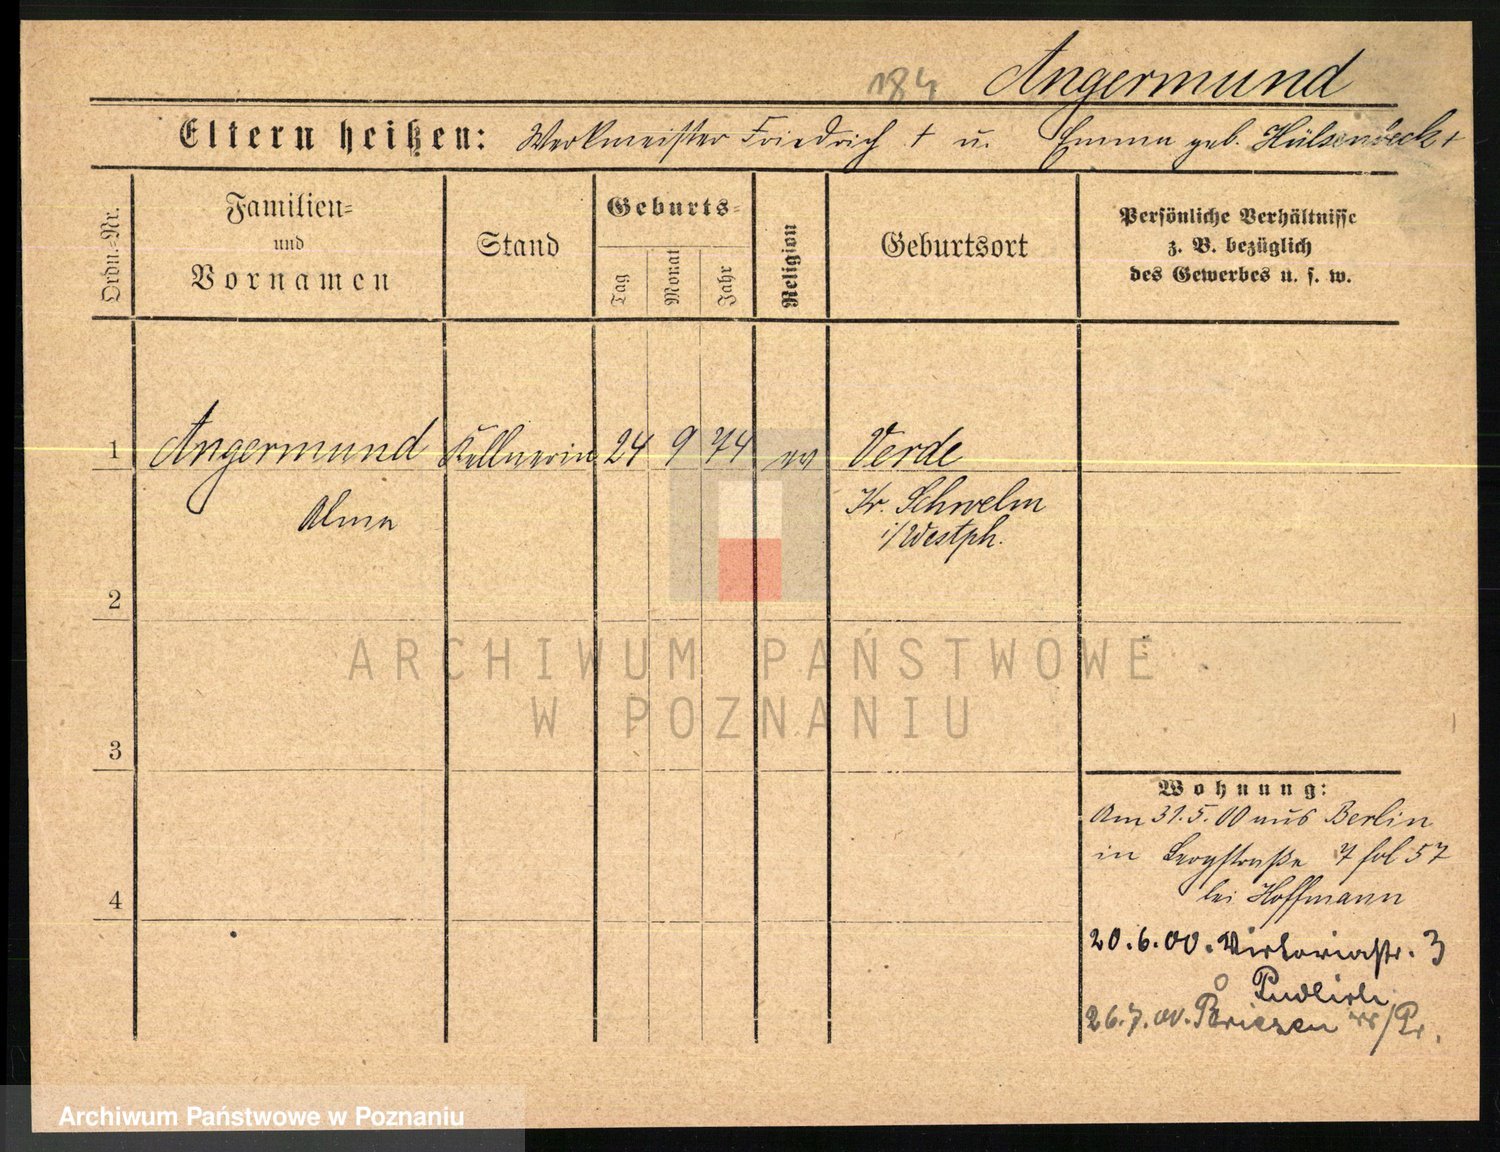 184 Angermund
Eltern heißen: Werkmeister Friedrich † u. Emma geb. Hülsenbeck †
Ordn.-Nr.
Familien-
und
Vornamen
Stand
Geburts-
Tag
Monat
Jahr
Religion
Geburtsort
Persönliche Verhältnisse
z. B. bezüglich
des Gewerbes u. s. w.
1 Angermund Kellnerin 24 9 74 ev Verde
Alma
Kr. Schwelm
i/Westph.
2
ARCHIWUM PAŃSTWOWE
W POZNANIU
3
4
Wohnung:
Am 31.5.00 aus Berlin
in Bergstraße 7 fol 57
bei Hoffmann
20.6.00. Viktoriastr. 3
26.7.00. Briesen W/Pr.
Archiwum Państwowe w Poznaniu